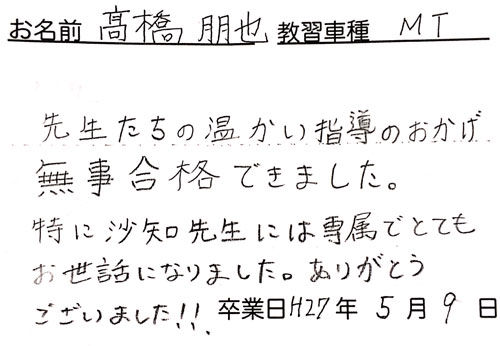 お名前 髙橋 朋也 教習車種 MT
先生たちの温かい指導のおかげ
無事合格できました。
特に沙知先生には専属でとても
お世話になりました。ありがとう
ございました!!. 卒業日H27年 5月 9日